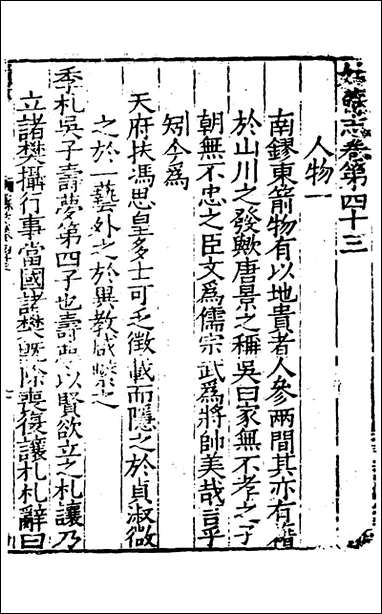 姑蘇志卷第四十三
人物一
南鏐東箭物有以地貴者人參兩間其亦有藉
於山川之發歟唐景之稱吳曰家無不孝之子
朝無不忠之臣文爲儒宗武爲將帥美哉言乎
矧今爲
天府扶馮思皇多士可乏徵載而隱之於貞淑微
之於一藝外之於異教咸繫之
季札吳子壽夢第四子也壽夢以賢欲立之札讓乃
立諸樊攝行事當國諸樊既除喪復讓札札辭曰